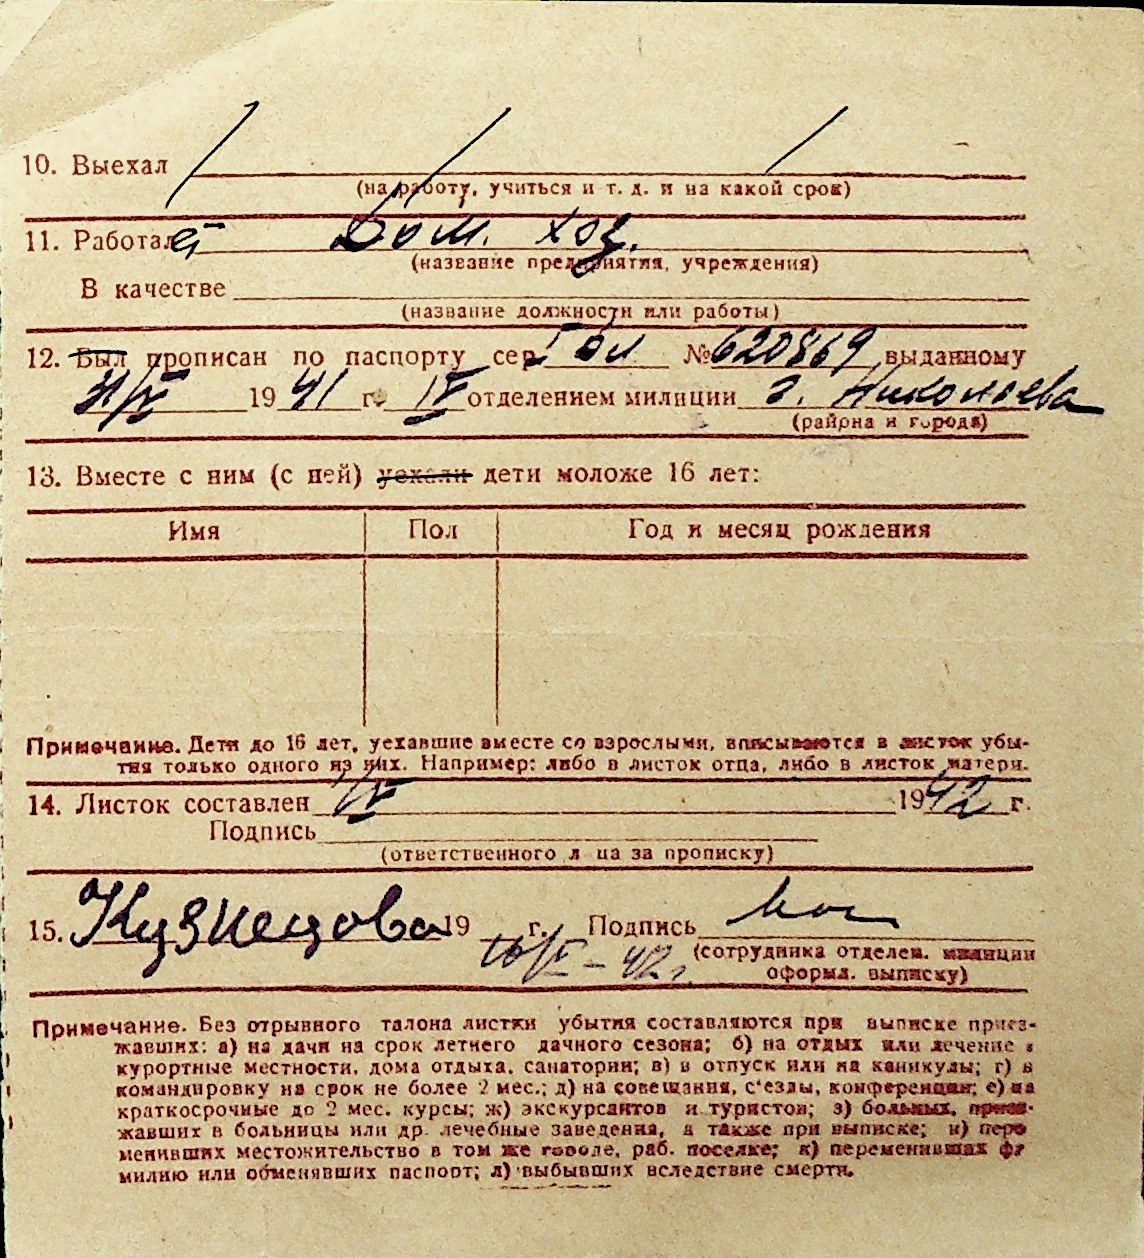 10. Выехал
(на работу, учиться и т. д. и на какой срок)
11. Работал Дом. хоз.
(название предприятия, учреждения)
В качестве
(название должности или работы)
12. Был прописан по паспорту сер. № 620869 выданному
1941 г. IV отделением милиции г. Николаева
(района и города)
13. Вместе с ним (с ней) уехали дети моложе 16 лет:
Имя Пол Год и месяц рождения
Примечание. Дети до 16 лет, уехавшие вместе со взрослыми, вписываются в листок убы-
тия только одного из них. Например: либо в листок отца, либо в листок матери.
14. Листок составлен 1942 г.
Подпись
(ответственного л ца за прописку)
15. Кузнецова 19 г. Подпись
16/ – 42 г. (сотрудника отделен. милиции
оформл. выписку)
Примечание. Без отрывного талона листки убытия составляются при выписке приез-
жавших: а) на дачи на срок летнего дачного сезона; б) на отдых или лечение в
курортные местности, дома отдыха, санатории; в) в отпуск или на каникулы; г) в
командировку на срок не более 2 мес.; д) на совещания, с'езды, конференции; е) на
краткосрочные до 2 мес. курсы; ж) экскурсантов и туристов; з) больных, приез-
жавших в больницы или др. лечебные заведения, а также при выписке; и) пере
менивших местожительство в том же городе, раб. поселке; к) переменивших фа
милию или обменявших паспорт; л) выбывших вследствие смерти.